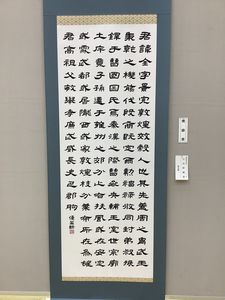 君諱全字景完敦煌效穀人也其先蓋周之胄武王
秉乾之機翦伐殷商既定爾勳福祿攸同封弟叔振
鐸于曹國因氏焉秦漢之際曹參夾輔王室世宗廓
土斥竟子孫遷于雍州之郊分止右扶風或在安定
或處武都或居隴西或家敦煌枝分葉布所在為雄
君高祖父敏舉孝廉武威長史巴郡朐